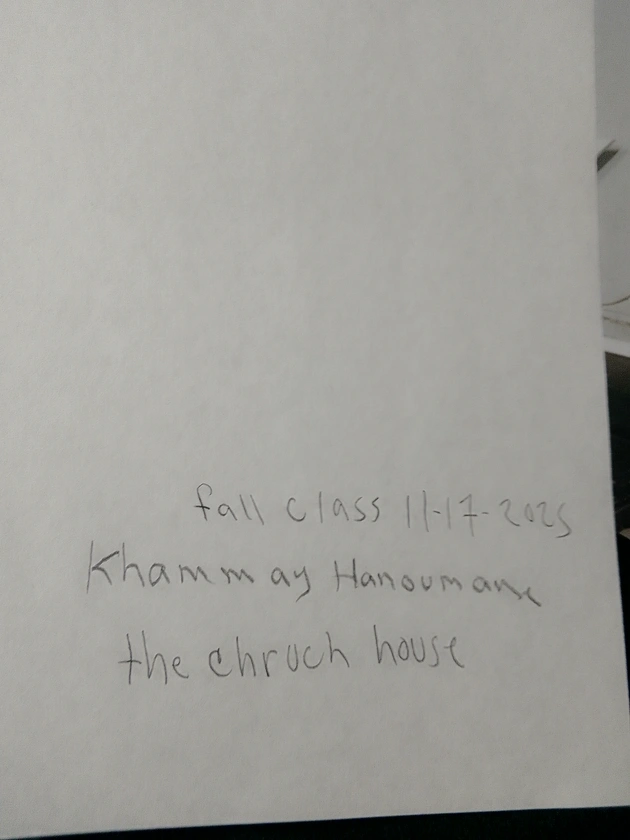 fall class 11-17-2025
Khammay Hanoumane
the chruch house